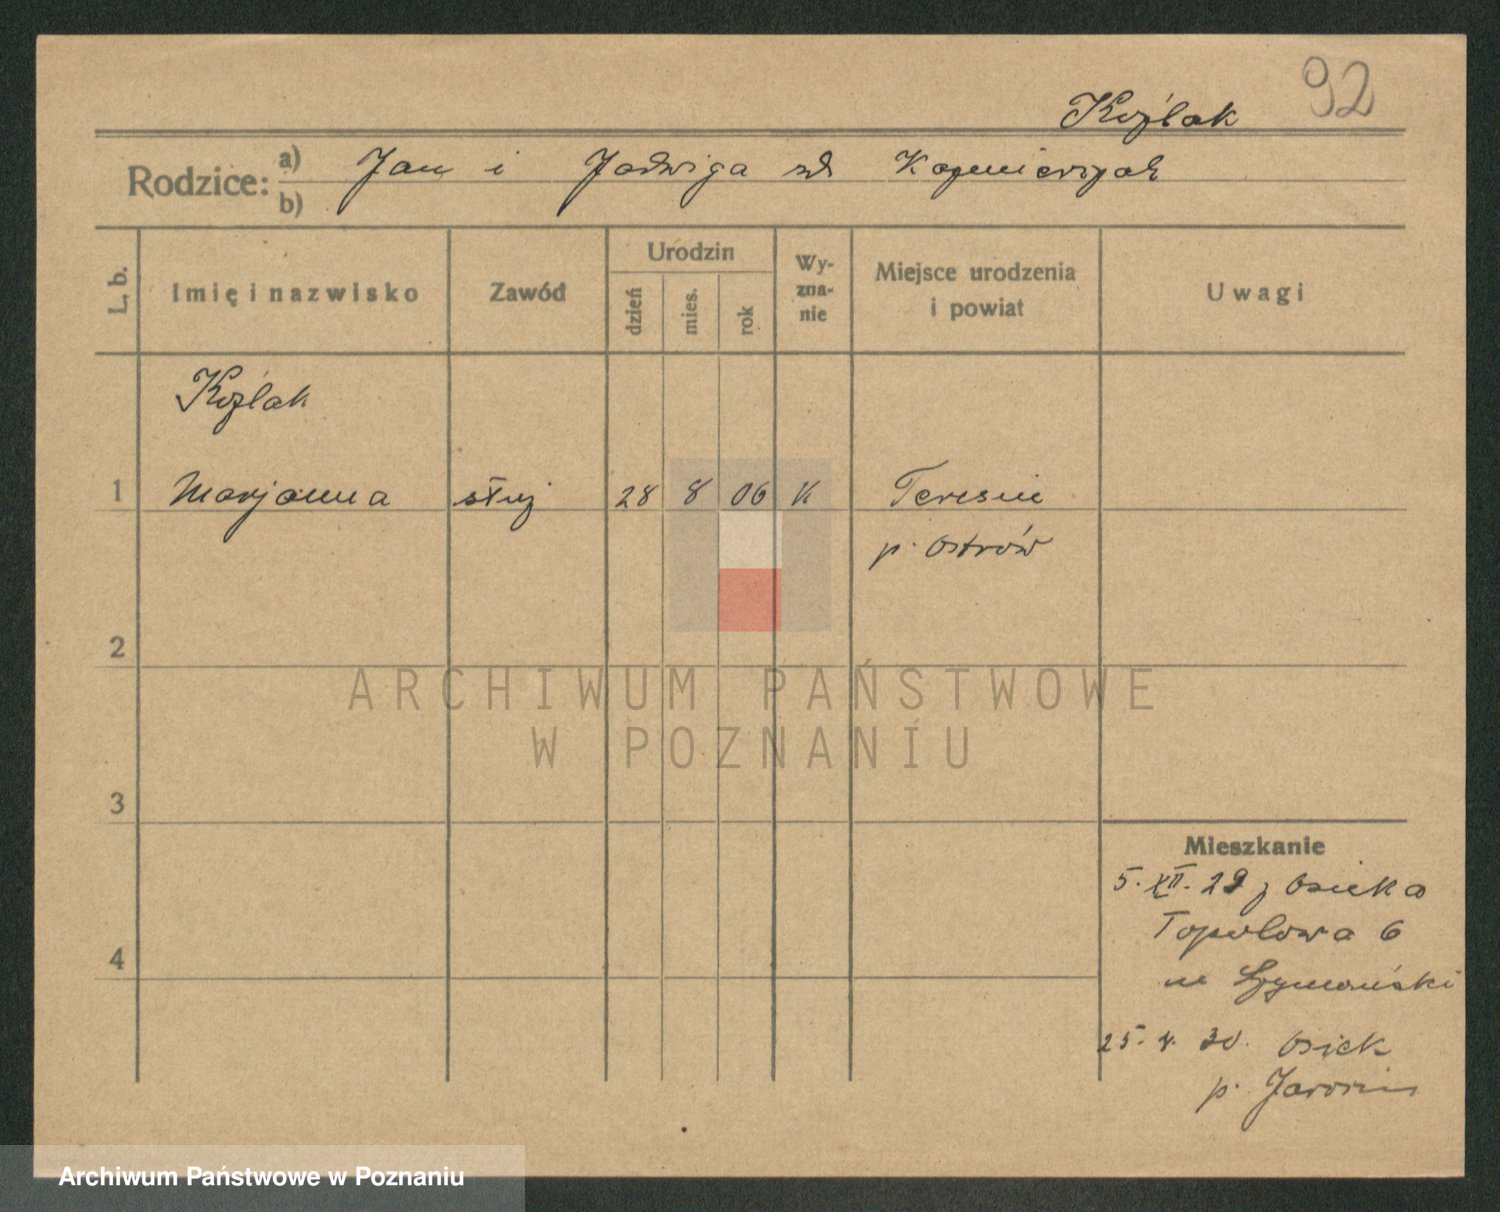 92
Koźlak
Rodzice: a) Jan i Jadwiga zd Kaźmierczak
b)
L. b. Imię i nazwisko Zawód Urodzin dzień mies. rok Wyznanie Miejsce urodzenia i powiat Uwagi
Koźlak
1 Marjanna służ 28 8 06 K Teresin
p. Ostrów
2
ARCHIWUM PAŃSTWOWE
W POZNANIU
3
Mieszkanie
5. XII. 29 z Osieka
4 Topolowa 6
Szymański
25. 30. Osiek
p. Jarocin
Archiwum Państwowe w Poznaniu